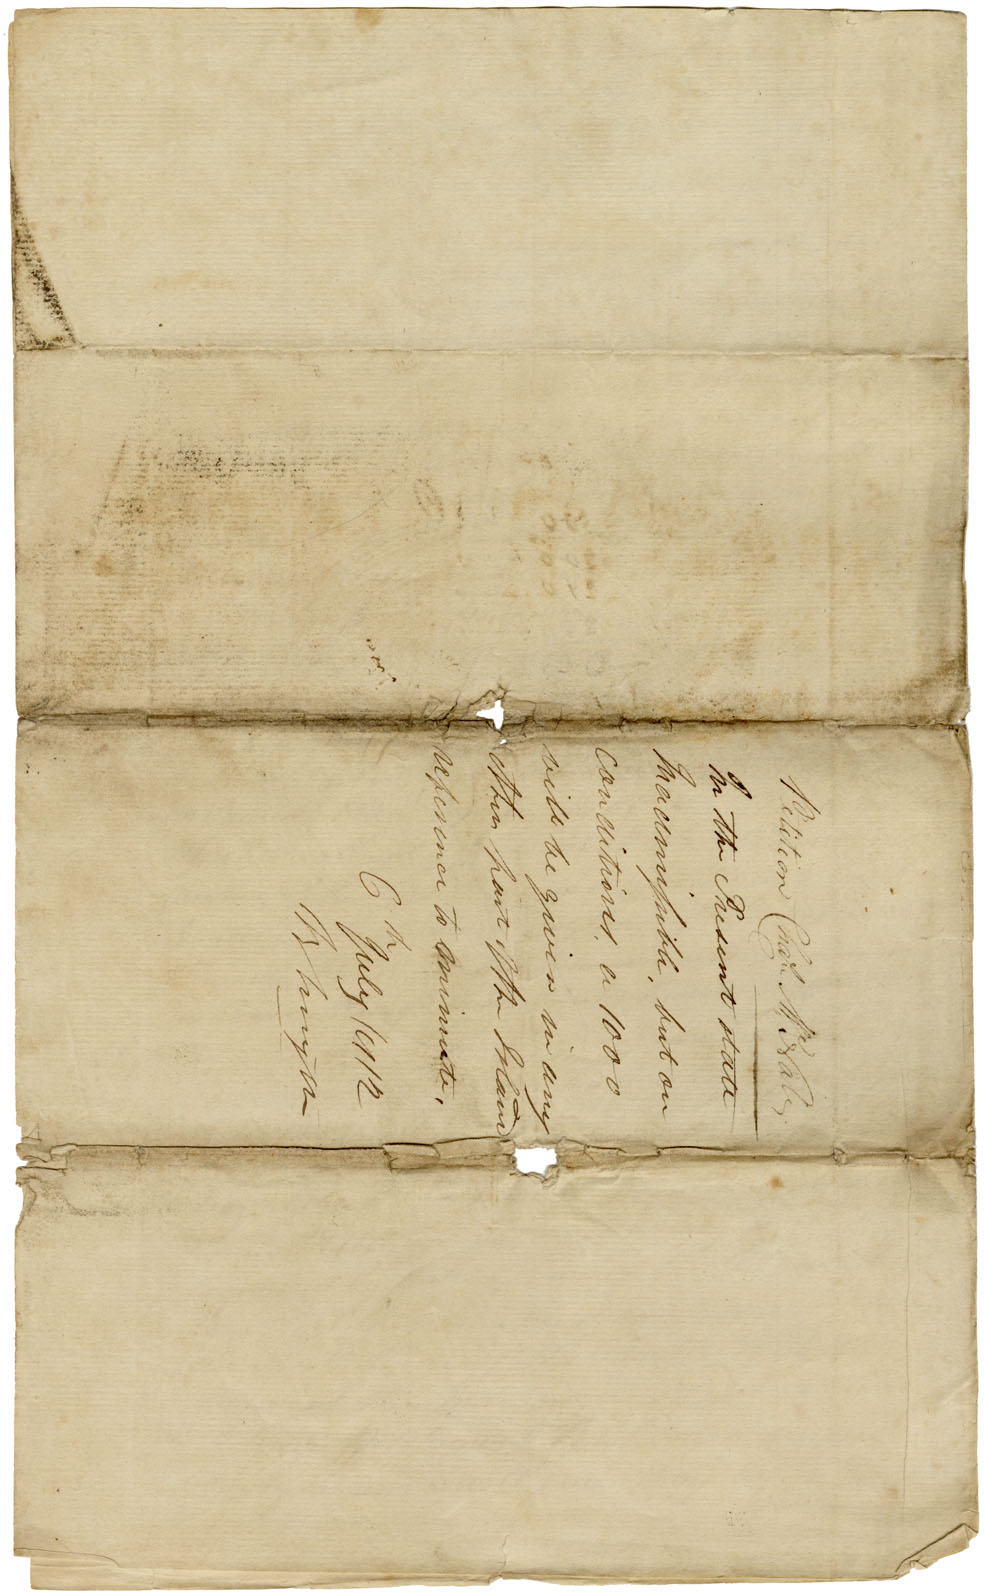 Petition Chas. McNally
In the Present state
Inadmissible, but on
conditions, a 1000
will be given in any
other part of the Island
reference to minute,
6th
July 1812